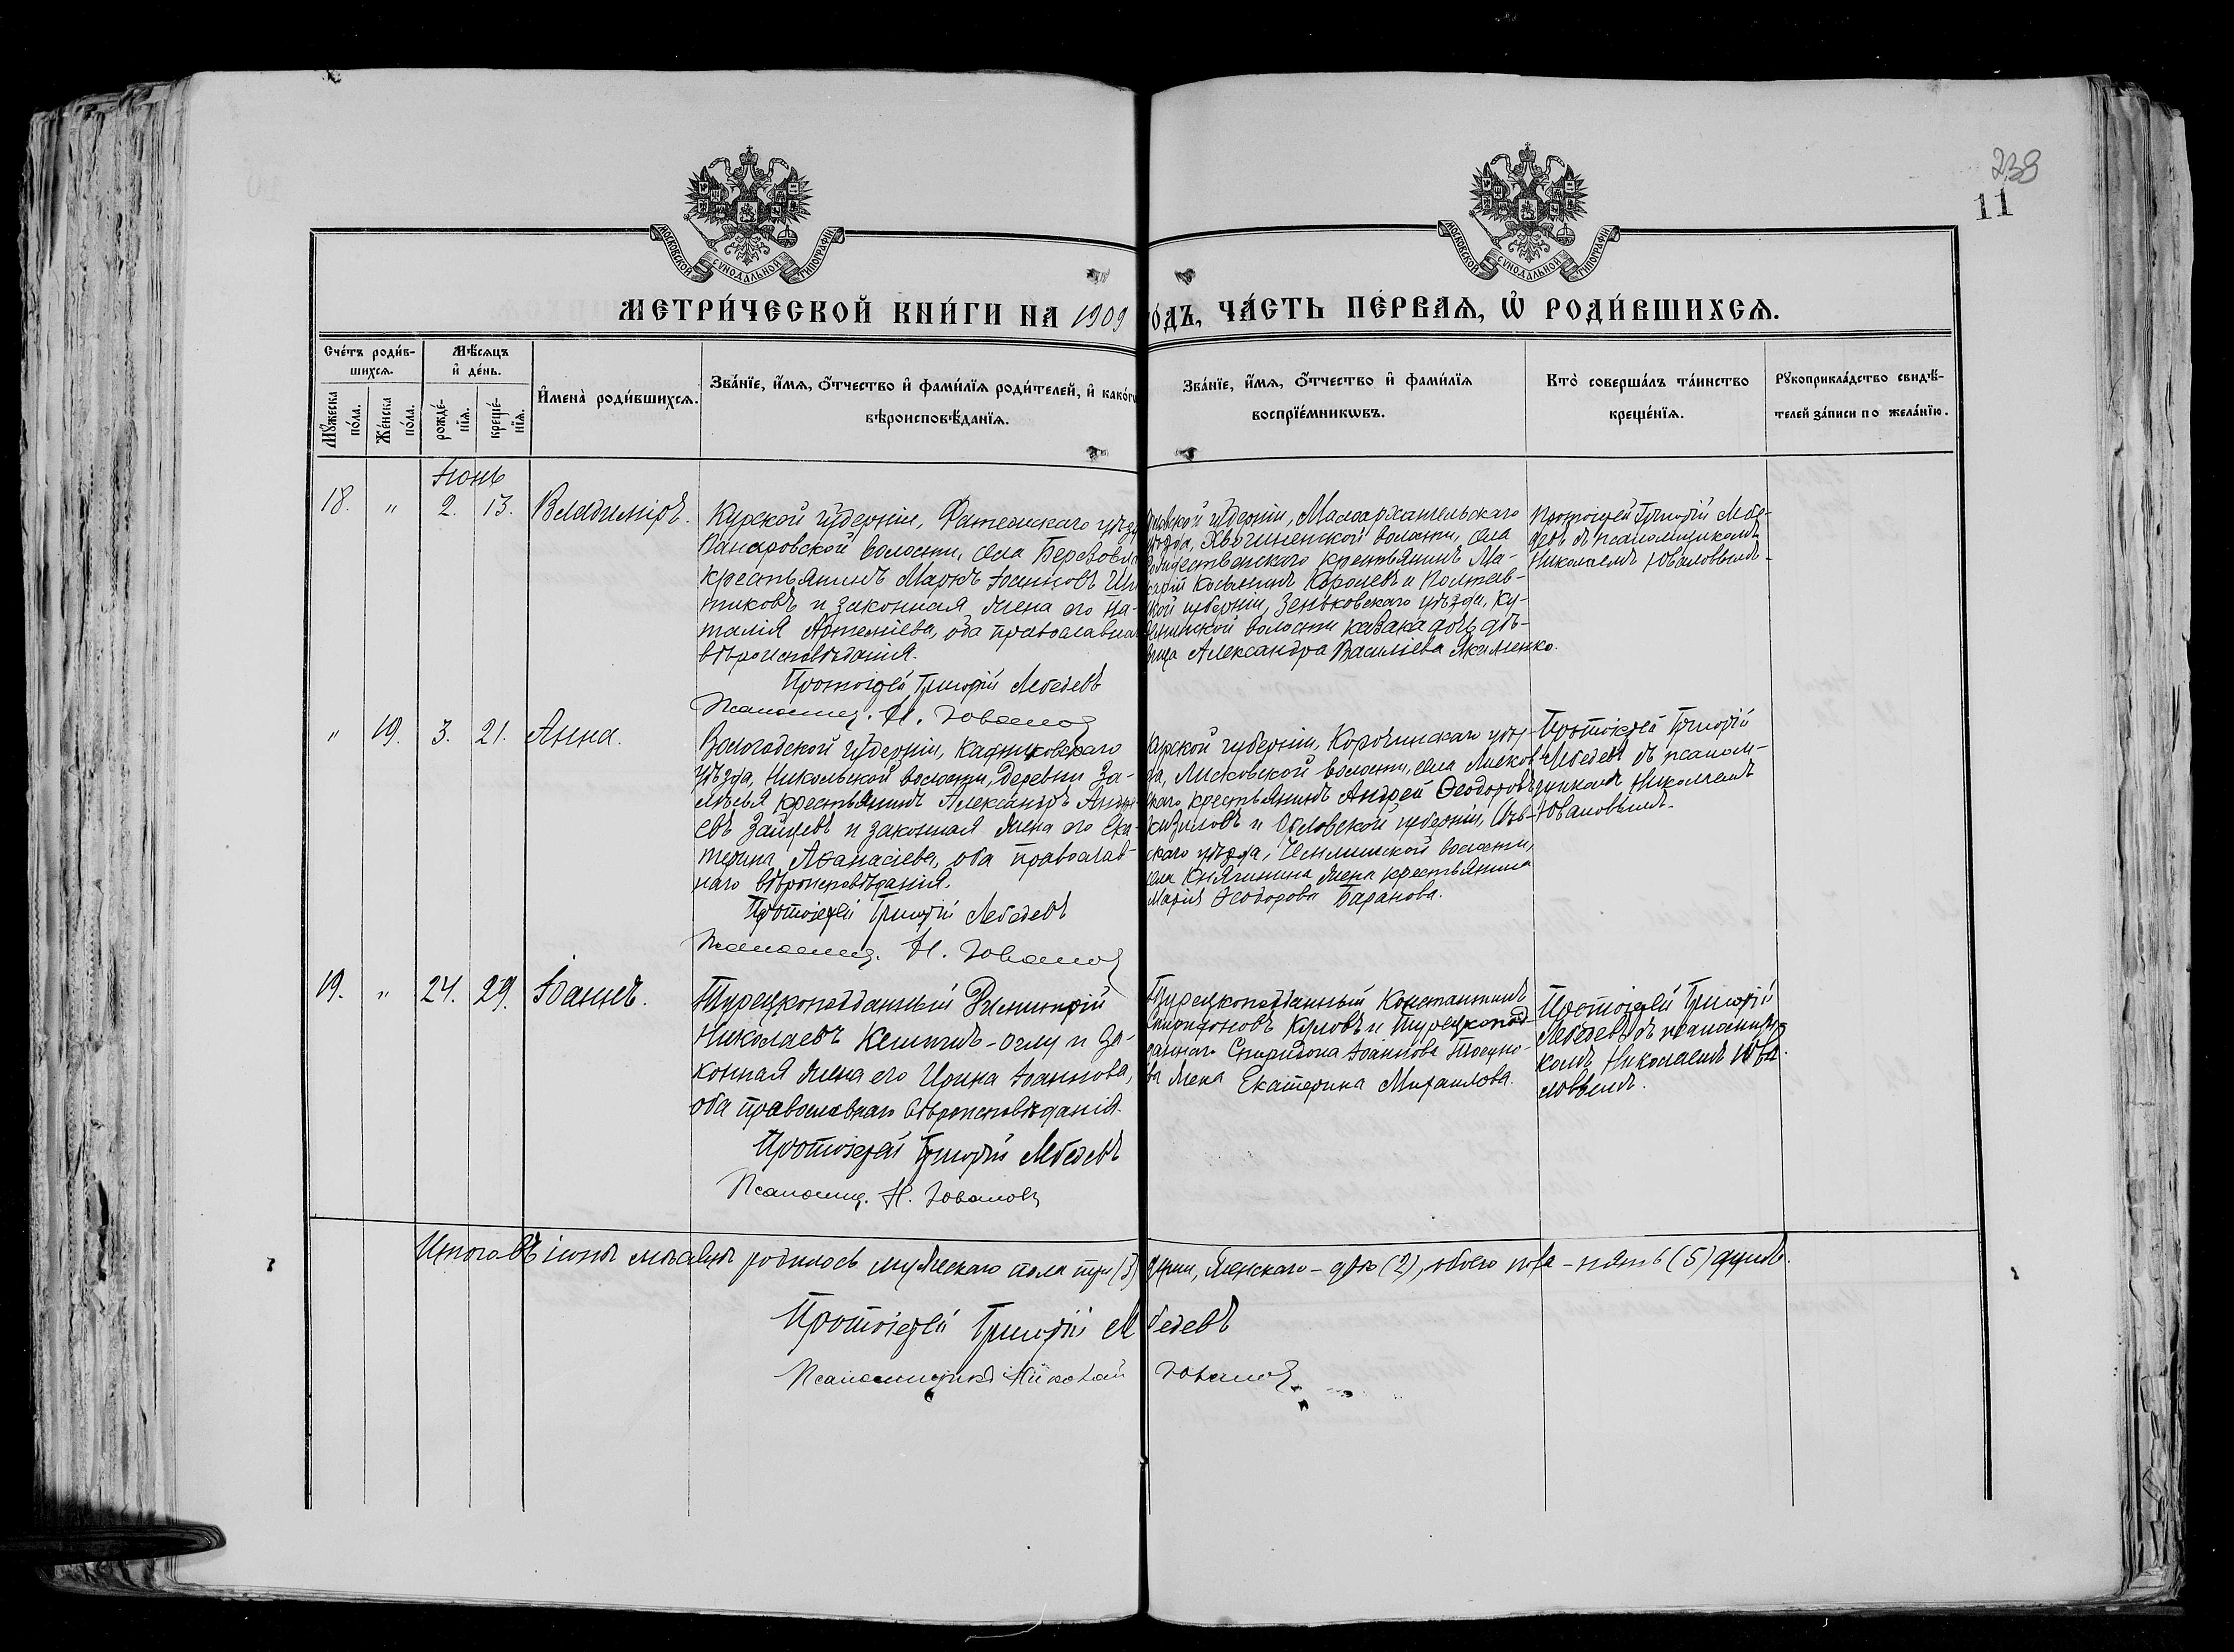 238
11
МОСКОВСКОЙ СѴНОДАЛЬНОЙ ТИПОГРАФІИ
МОСКОВСКОЙ СѴНОДАЛЬНОЙ ТИПОГРАФІИ
МЕТРИ́ЧЕСКОЙ КНИ́ГИ НА 1909
о́дъ, ЧА́СТЬ ПЕ́РВАѦ, Ѽ РОДИ́ВШИХСѦ.
Счéтъ роди́в-
шихсѧ.
Мѣ́сѧцъ
и҆ де́нь.
Мꙋ́жеска
по́ла.
Же́нска
по́ла.
рожде́-
нїѧ.
креще́-
нїѧ.
И҆мена̀ роди́вшихсѧ.
Зва́нїе, и҆́мѧ, ѻ҆́тчество и҆ фами́лїѧ роди́телей, и҆ како́гѡ
вѣроисповѣ́данїѧ.
Зва́нїе, и҆́мѧ, ѻ҆́тчество и҆ фами́лїѧ
воспрїе́мникѡвъ.
Кто̀ соверша́лъ та́инство
креще́нїѧ.
Рꙋкоприкла́дство свидѣ́-
телей за́писи по жела́нїю.
Іюнь
18. " 2. 13. Владиміръ.
Курской губерніи, Фатежскаго уѣзд
волости, села
крестьянинъ Маркъ Іоанновъ
тиковъ и законная жена его На-
талія Артеміева, оба православна
вѣроисповѣданія.
Протоіерей Григорій Лебедевъ
Псаломщ. Н. Юваловъ
ловской губерніи, Малоархангельскаго
уѣзда, волости, села
рождественскаго крестьянинъ Ма-
карій Косьминъ Королевъ и Полтав-
ской губерніи, Зеньковскаго уѣзда, Ку-
земинской волости казака дочь дѣ-
вица Александра Василіева Якименко.
Протоіерей Григорій Лебе-
девъ съ псаломщикомъ
Николаемъ Юваловымъ.
" 19. 3. 21. Анна.
Вологодской губерніи, Кадниковскаго
уѣзда, Никольской волости, деревни За-
крестьянинъ Александръ
евъ Зайцевъ и законная жена его Ека-
терина Аѳанасіева, оба православ-
наго вѣроисповѣданія.
Протоіерей Григорій Лебедевъ
Псаломщ. Н. Юваловъ
Курской губерніи, Корочанскаго уѣз-
да, волости, села
скаго крестьянинъ Андрей Ѳеодоровъ
и Орловской губерніи, Сѣв-
скаго уѣзда, волости,
села Княгинина жена крестьянина
Марія Ѳеодорова Баранова.
Протоіерей Григорій
Лебедевъ съ псалом-
щикомъ Николаемъ
Юваловымъ.
19. " 24. 29. Іоаннъ.
Турецкоподданный Димитрій
Николаевъ -оглу и за-
конная жена его Ирина Іоаннова,
оба православнаго вѣроисповѣданія.
Протоіерей Григорій Лебедевъ
Псаломщ. Н. Юваловъ
Турецкоподданный Константинъ
Спиридоновъ и Турецкопод-
даннаго Спиридона Іоаннова
ва жена Екатерина Михаилова.
Протоіерей Григорій
Лебедевъ съ псаломщи-
комъ Николаемъ Юва-
ловымъ.
Итого въ іюнѣ мѣсяцѣ родилось мужескаго пола три (3) души, женскаго - двѣ (2), обоего пола - пять (5) душъ.
Протоіерей Григорій Лебедевъ
Псаломщикъ Николай Юваловъ